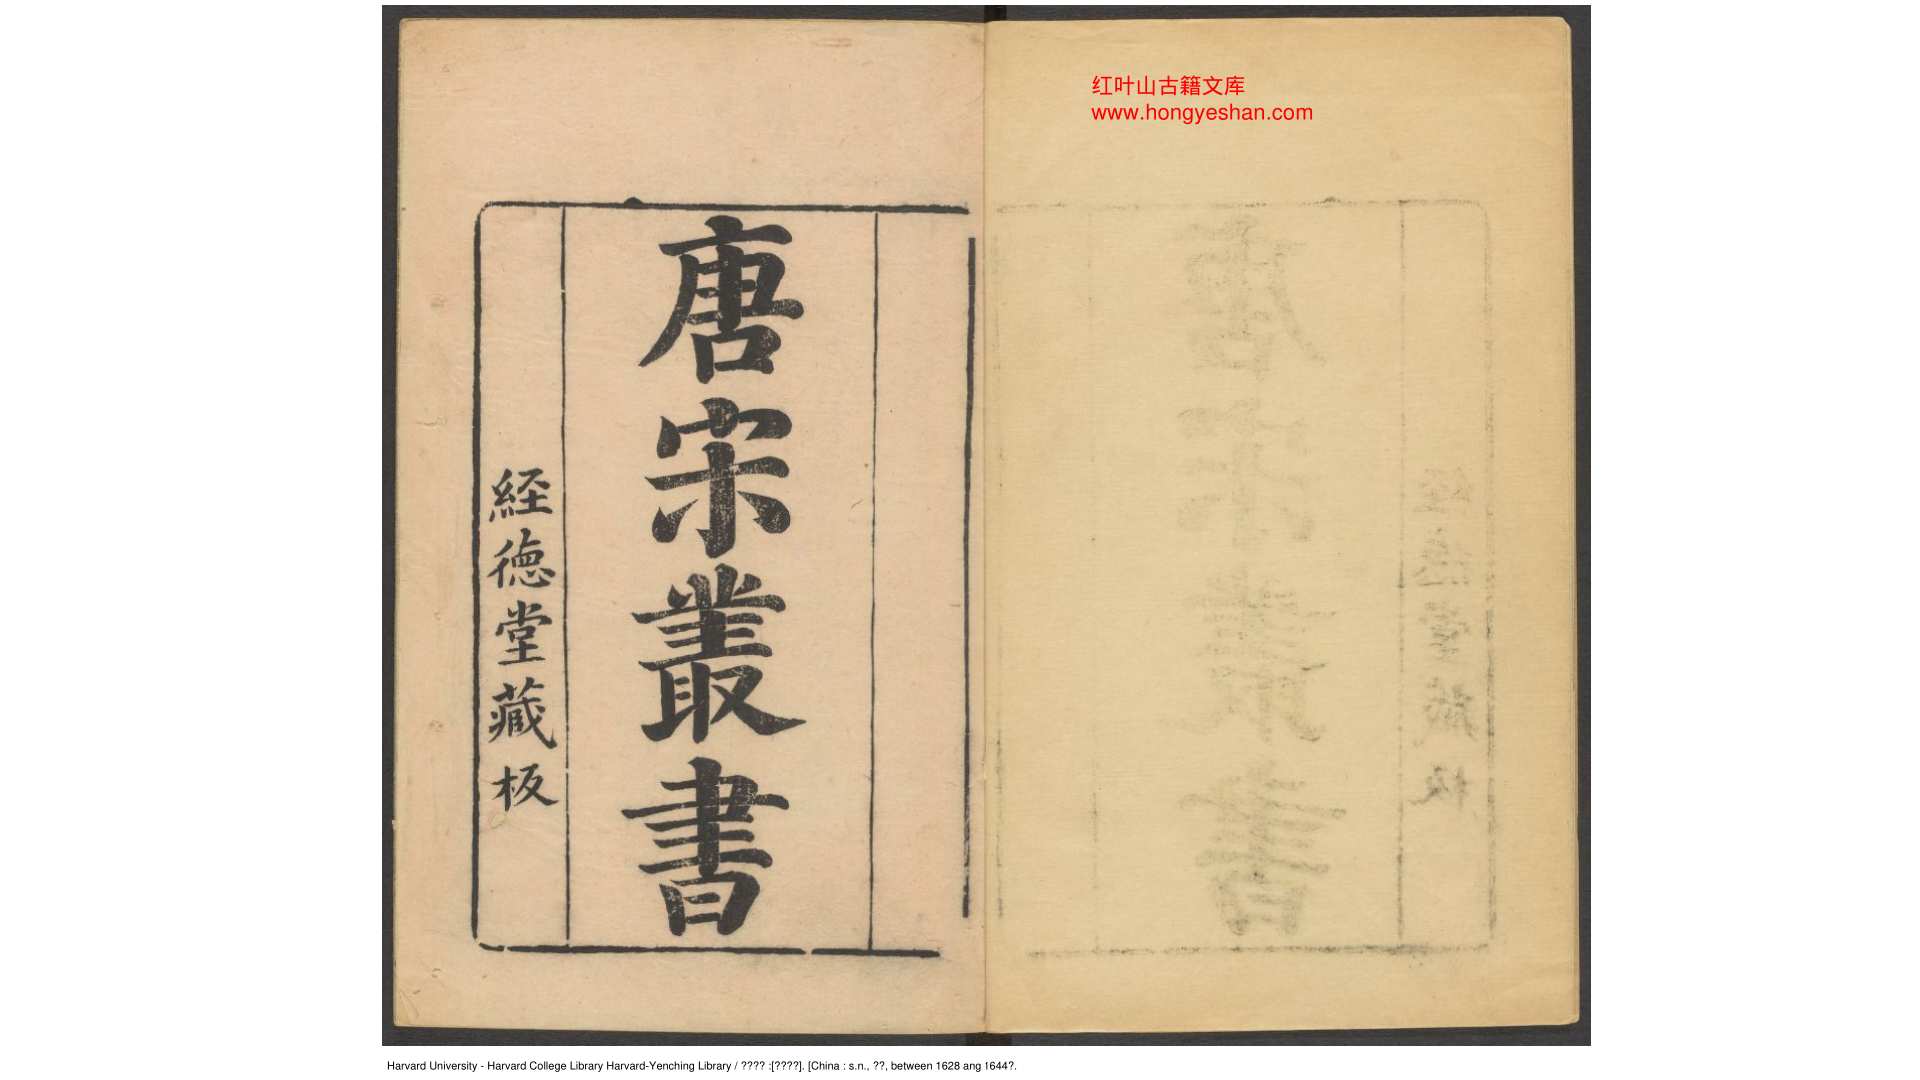 红叶山古籍文库
www.hongyeshan.com
唐宋叢書
経徳堂藏板
Harvard University - Harvard College Library Harvard-Yenching Library / ???? :[????]. [China : s.n., ??, between 1628 ang 1644?.